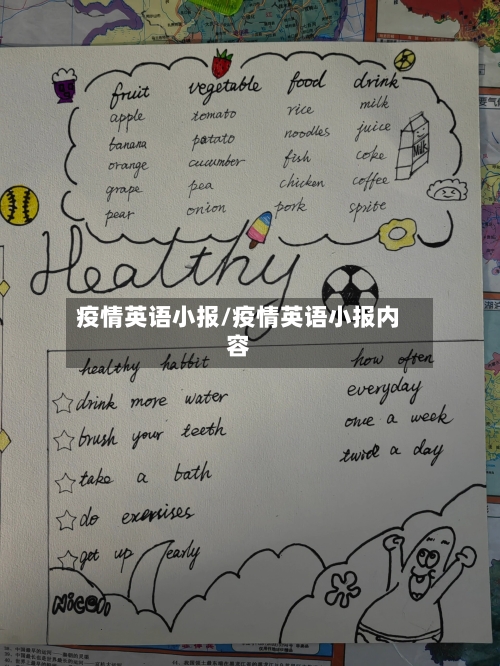 fruit vegetable food drink
apple tomato rice milk
banana potato noodles juice
orange cucumber fish coke
grape pea chicken coffee
pear onion pork sprite
Milk
Healthy
疫情英语小报/疫情英语小报内
容
healthy habbit how often
drink more water everyday
brush your teeth one a week
take a bath twice a day
do exercises
get up early
Nice!!